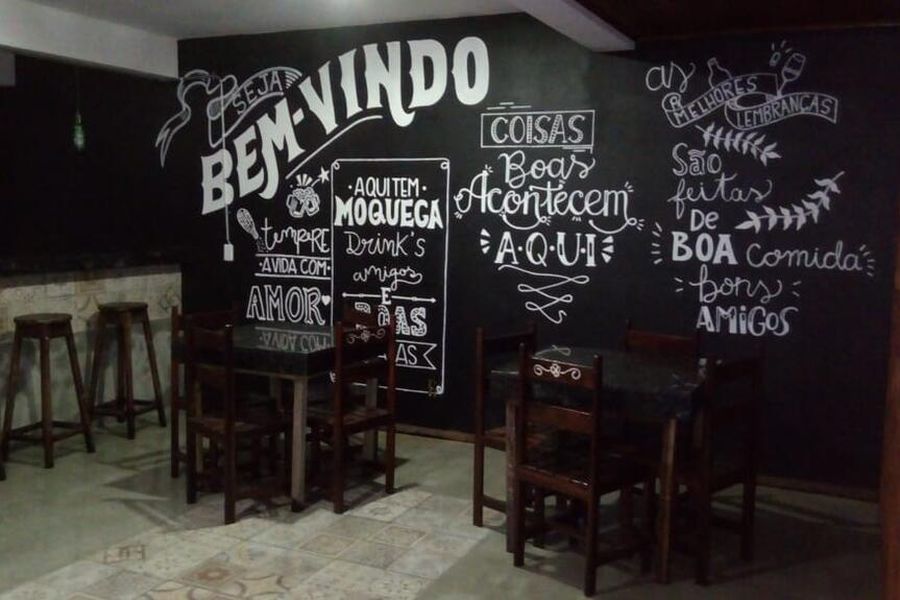 SEJA
BEM-VINDO
tempere
A VIDA COM
AMOR
AQUI TEM
MOQUEGA
Drink's
amigos
E
COISAS
Boas
Acontecem
A·Q·U·I
as
MELHORES
LEMBRANÇAS
São
feitas
De
BOA Comida
bons
AMIGOS